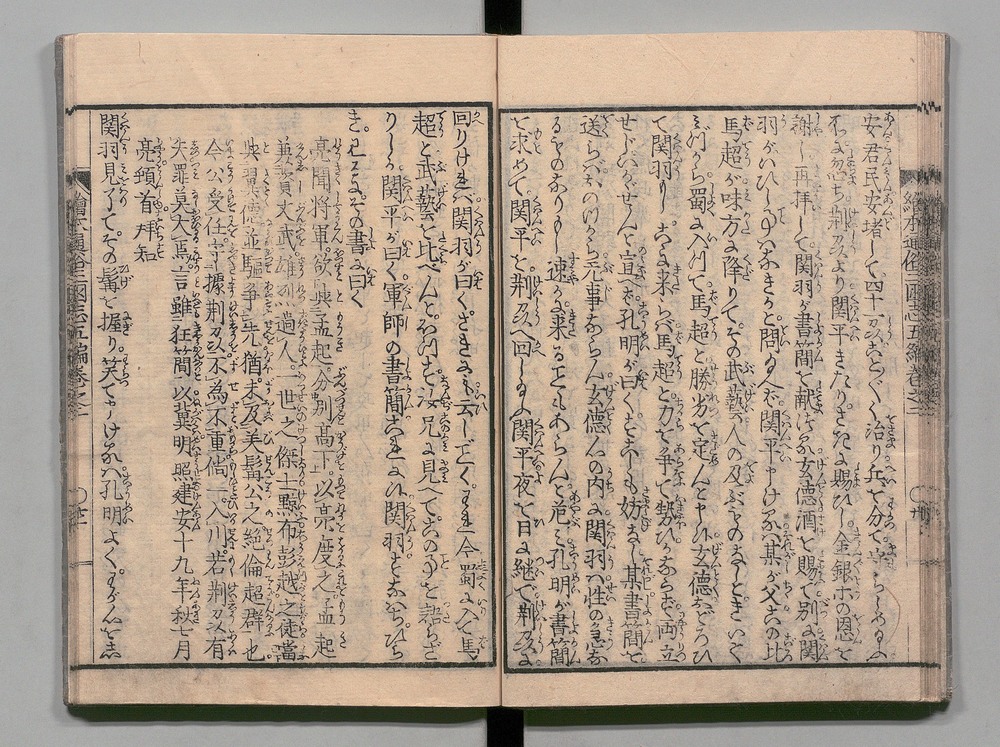 安君民安堵して四十一刕ことごとく治り兵を分て守らしめける
不日忽ち荊刕より関平きたりさきに賜ひし金銀ホの恩を
謝し再拝して関羽が書簡を献げる玄徳酒を賜て別に関
羽がいひし事はなきかと問給へば関平申けるは某が父この比
馬超が味方に降りてその武藝人の及ぶものなしときいて
みづから蜀に入りて馬超と勝劣を定んと申す玄徳おどろひ
て関羽もしこゝに来らば馬超と力を争て勢ひかならず両立
せじいかゞせんと宣へば孔明が曰くすこしも妨なし某書簡を
送らばおのづから元事ならん玄徳心の内に関羽は性の急な
るものなりもし速に来ることもあらんと危み孔明が書簡
を求めて関平を荊刕へ回しけるに関平夜を日に継で荊刕に
回りければ関羽が曰くさきに云しごとくわれ今蜀に入て馬
超と武藝を比べんとおもひしむね汝兄に見へてこの事を語ちざ
りしか関平が曰く軍師の書簡これにあり関羽すなはちひら
き見るにその書に曰く
亮聞将軍欲下與二孟起一分中別高下上以亮度之孟起
兼資文武雄烈過人一世之傑黥布彭越之徒當
與翼德並驅爭先猶未及美髯公之絶倫超群也
今公受任守據荊刕不為不重倘一入川若荊刕有
失罪莫大焉言雖狂簡以冀明照建安十九年秋七月
亮頓首拜知
関羽見了てその髯を握り笑て申けるは孔明よくわが心を志
繪本通俗三國志五編巻之二